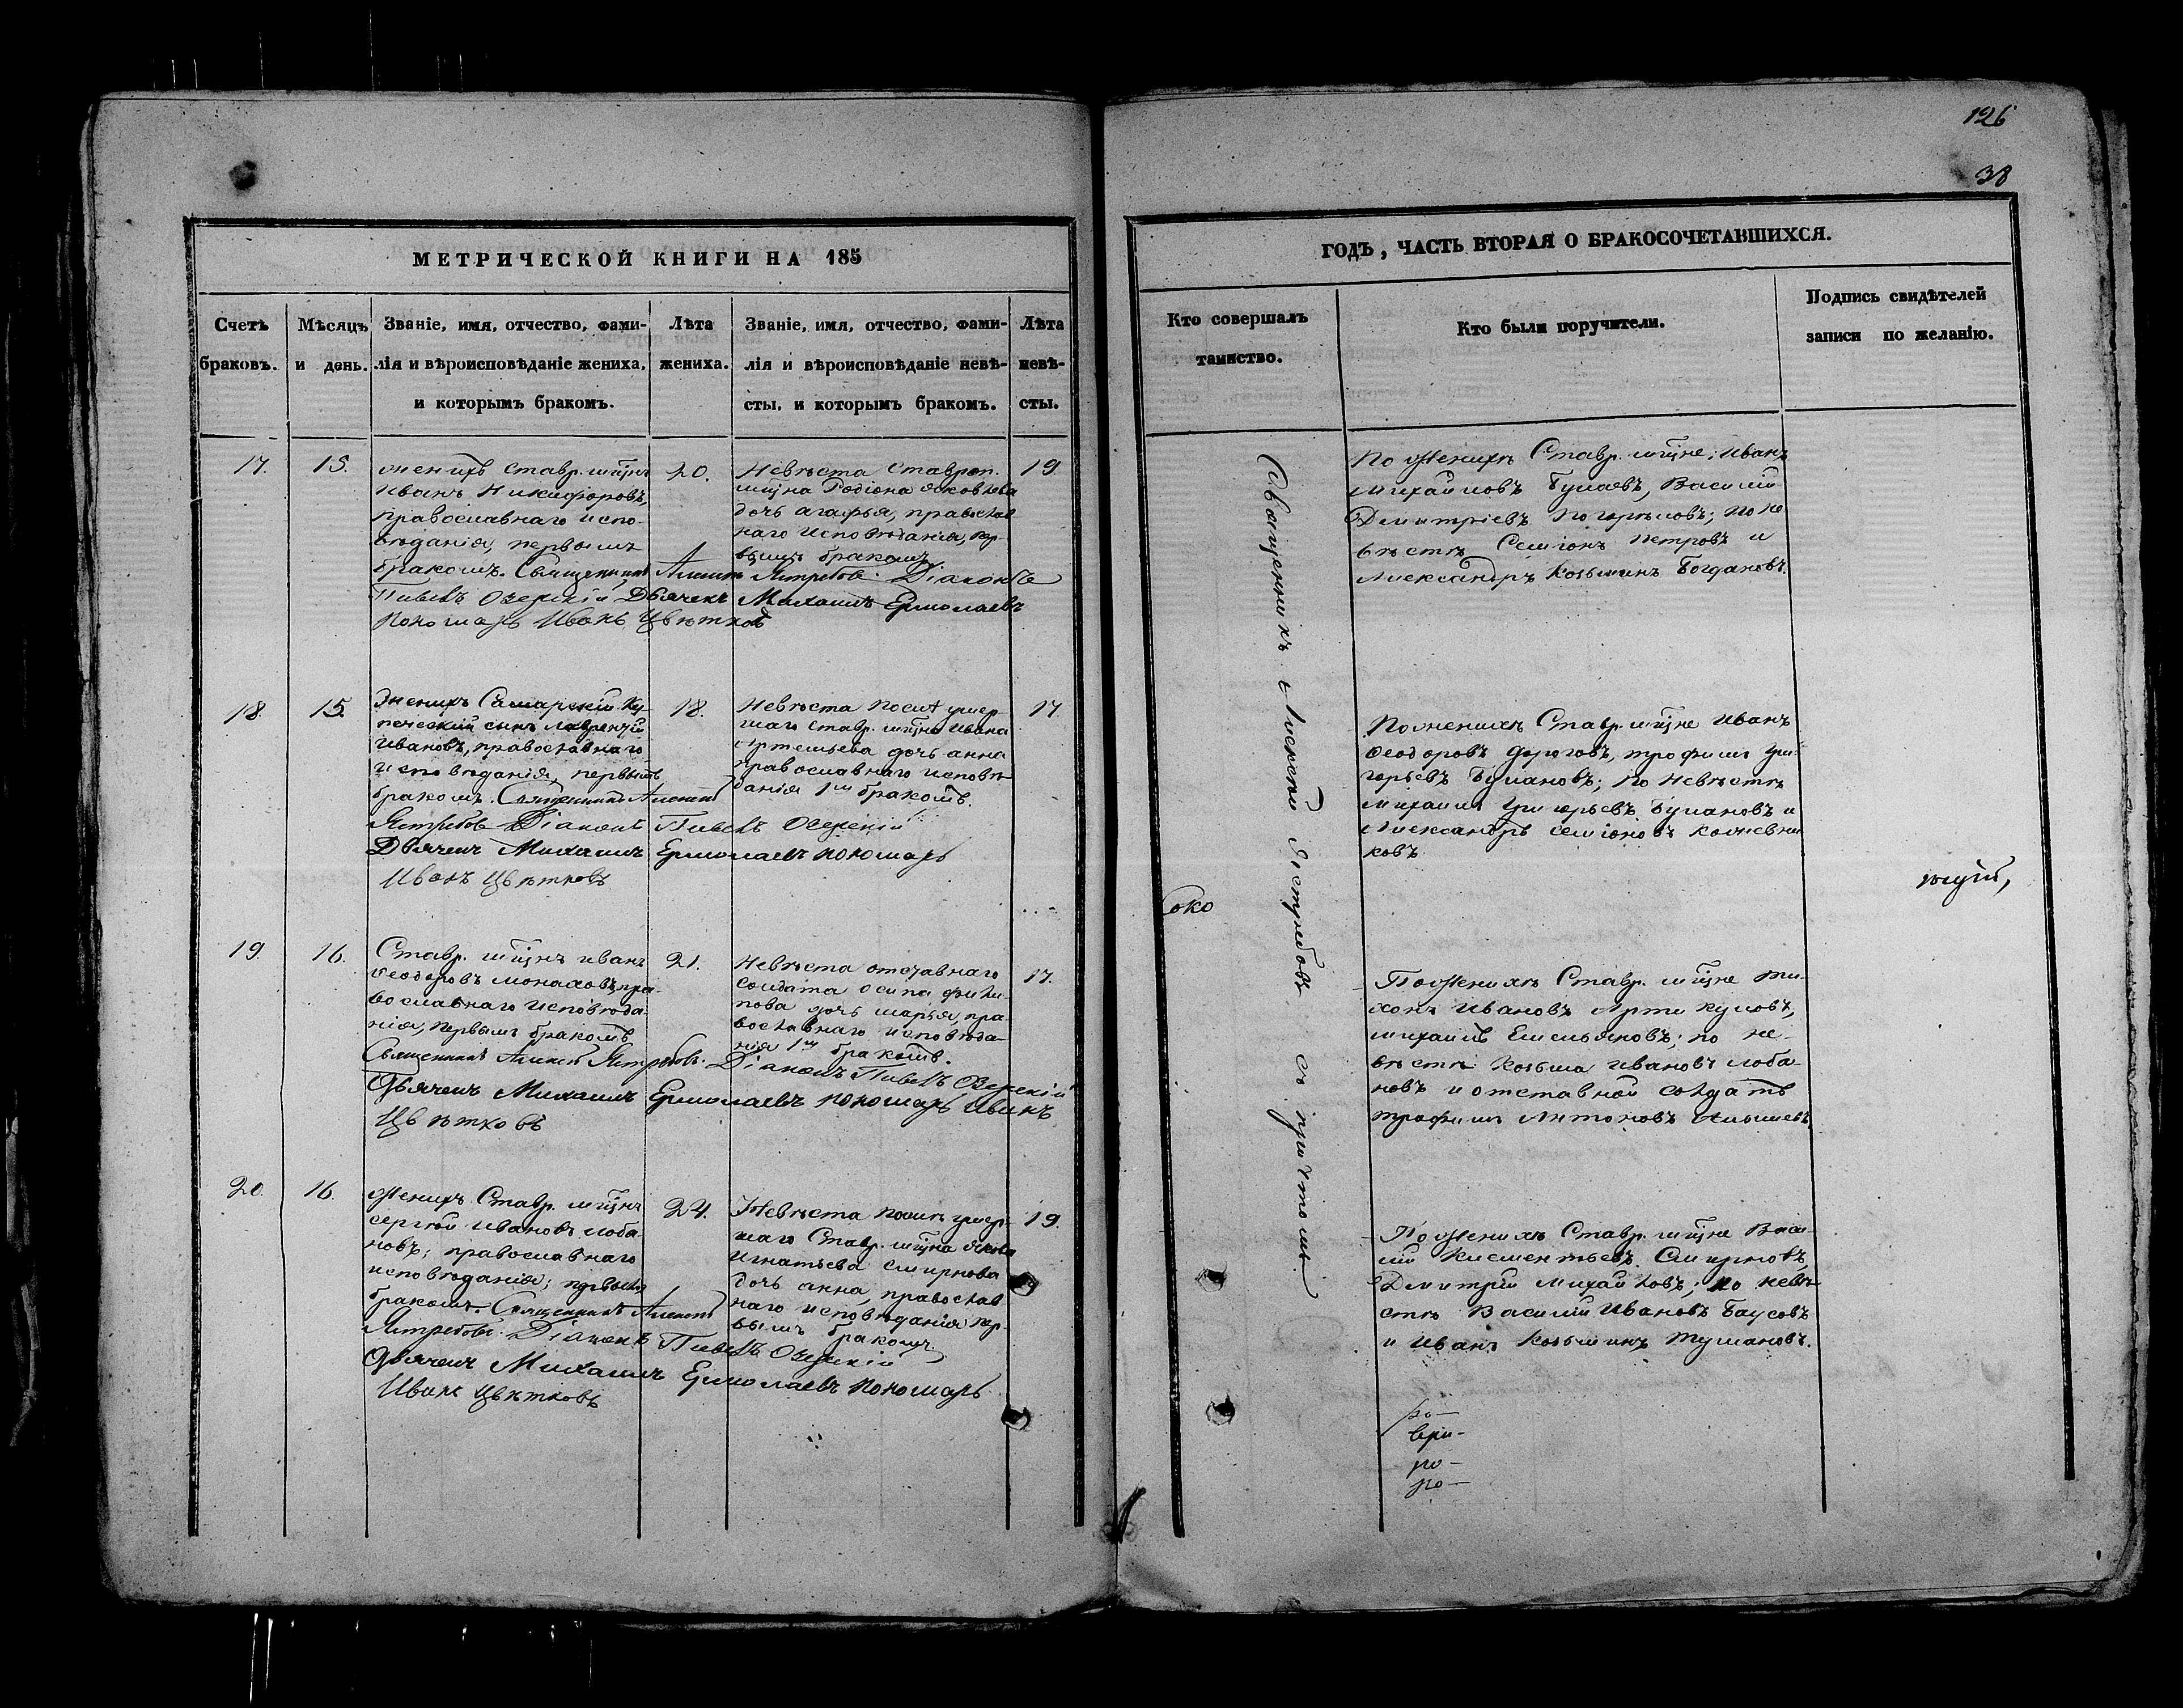 126
38
МЕТРИЧЕСКОЙ КНИГИ НА 185
Счетъ
браковъ.
Мѣсяцъ
и день.
Званіе, имя, отчество, фами-
лія и вѣроисповѣданіе жениха,
и которымъ бракомъ.
Лѣта
жениха.
Званіе, имя, отчество, фами-
лія и вѣроисповѣданіе невѣ-
сты, и которымъ бракомъ.
Лѣта
невѣ-
сты.
17.
15.
женихъ Ставр. мѣщнъ
Иванъ Никифоровъ,
православнаго испо-
вѣданія, первымъ
бракомъ. Священникъ Алексѣй Ястребовъ. Діаконъ
Павелъ Озерскій Дьячекъ Михаилъ Ермолаевъ
Пономарь Иванъ Цвѣтковъ
20.
Невѣста Ставроп.
мщна Родіона Яковлева
дочь агафья, православ
наго исповѣданія, пер-
вымъ бракомъ
19
18.
15.
Женихъ Самарскій Ку-
печескій сынъ Лаврентій
Ивановъ, православнаго
исповѣданія, первымъ
бракомъ. Священникъ Алексѣй
Ястребовъ Діаконъ Павелъ Озерскій
Дьячекъ Михаилъ Ермолаевъ пономарь
Иванъ Цвѣтковъ
18.
Невѣста послѣ умер
шаго Ставр. мщна Ивана
Артемьева дочь анна
православнаго исповѣ
данія 1мъ бракомъ.
17
19
16.
Ставр. мѣщнъ иванъ
Ѳеодоровъ монаховъ, пра-
вославнаго исповѣда
нія, первымъ бракомъ
Священникъ Алексѣй Ястребовъ. Діаконъ Павелъ Озерскій
Дьячекъ Михаилъ Ермолаевъ пономарь Иванъ
Цвѣтковъ
21.
Невѣста отставнаго
солдата осипа фили-
пова дочь марья, пра-
вославнаго исповѣда-
нія 1мъ бракомъ.
17.
20.
16.
Женихъ Ставр. мѣщнъ
сергѣй Ивановъ лоба
новъ; православнаго
исповѣданія; первымъ
бракомъ. Священникъ Алексѣй
Ястребовъ. Діаконъ Павелъ Озерскій
Дьячекъ Михаилъ Ермолаевъ пономарь
Иванъ Цвѣтковъ
24.
Невѣста послѣ умер-
шаго Ставр. мѣщна Якова
Игнатьева смирнова
дочь анна, православ
наго исповѣданія пер-
вымъ бракомъ.
19.
ГОДЪ, ЧАСТЬ ВТОРАЯ О БРАКОСОЧЕТАВШИХСЯ.
Кто совершалъ
таинство.
Кто были поручители.
Подпись свидѣтелей
записи по желанію.
Священникъ Алексѣй Ястребовъ съ причтомъ.
По женихѣ Ставр. мщне; Иванъ
Михайловъ Булаевъ, Василій
Дмитріевъ Погорѣловъ; по не
вѣстѣ Семіонъ Петровъ и
Александръ Козьминъ Богдановъ.
По женихѣ Ставр. мщне Иванъ
Ѳеодоровъ Дороговъ, трофимъ гри-
горьевъ Булановъ; По невѣстѣ
михаилъ григорьевъ Булановъ и
Александръ семіоновъ Кожевни
ковъ
По женихѣ Ставр. мщне ти-
хонъ Ивановъ Артикуловъ,
михаилъ Емельяновъ; по не-
вѣстѣ Козьма Ивановъ лоба-
новъ и отставной солдатъ
трофимъ Антоновъ
По женихѣ Ставр. мщне Васи-
лій Климентьевъ Смирновъ,
Дмитрій Михайловъ; по невѣ-
стѣ Василій Ивановъ Баусовъ
и Иванъ Козьминъ Тумановъ.
око
ющій,
ро-
ври-
ро-
ро-